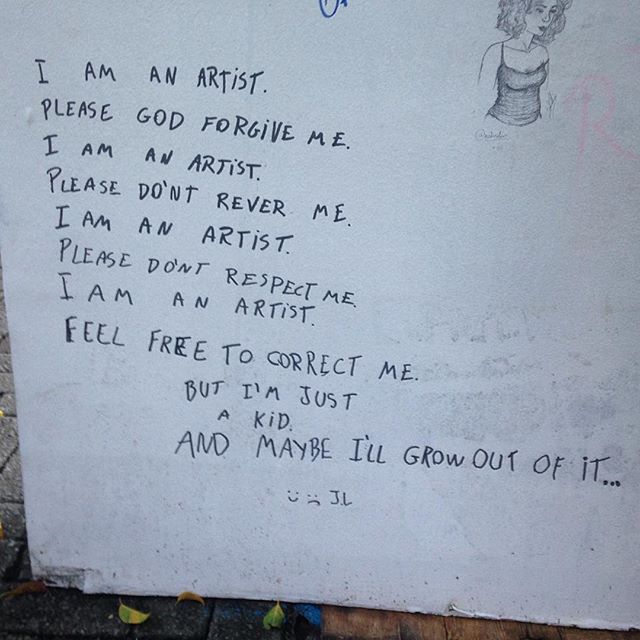 I AM AN ARTIST.
PLEASE GOD FORGIVE ME.
I AM AN ARTIST.
PLEASE DO'NT REVER ME.
I AM AN ARTIST.
PLEASE DO'NT RESPECT ME.
I AM AN ARTIST.
FEEL FREE TO CORRECT ME.
BUT I'M JUST
A KID.
AND MAYBE I'LL GROW OUT OF iT...
JL
R